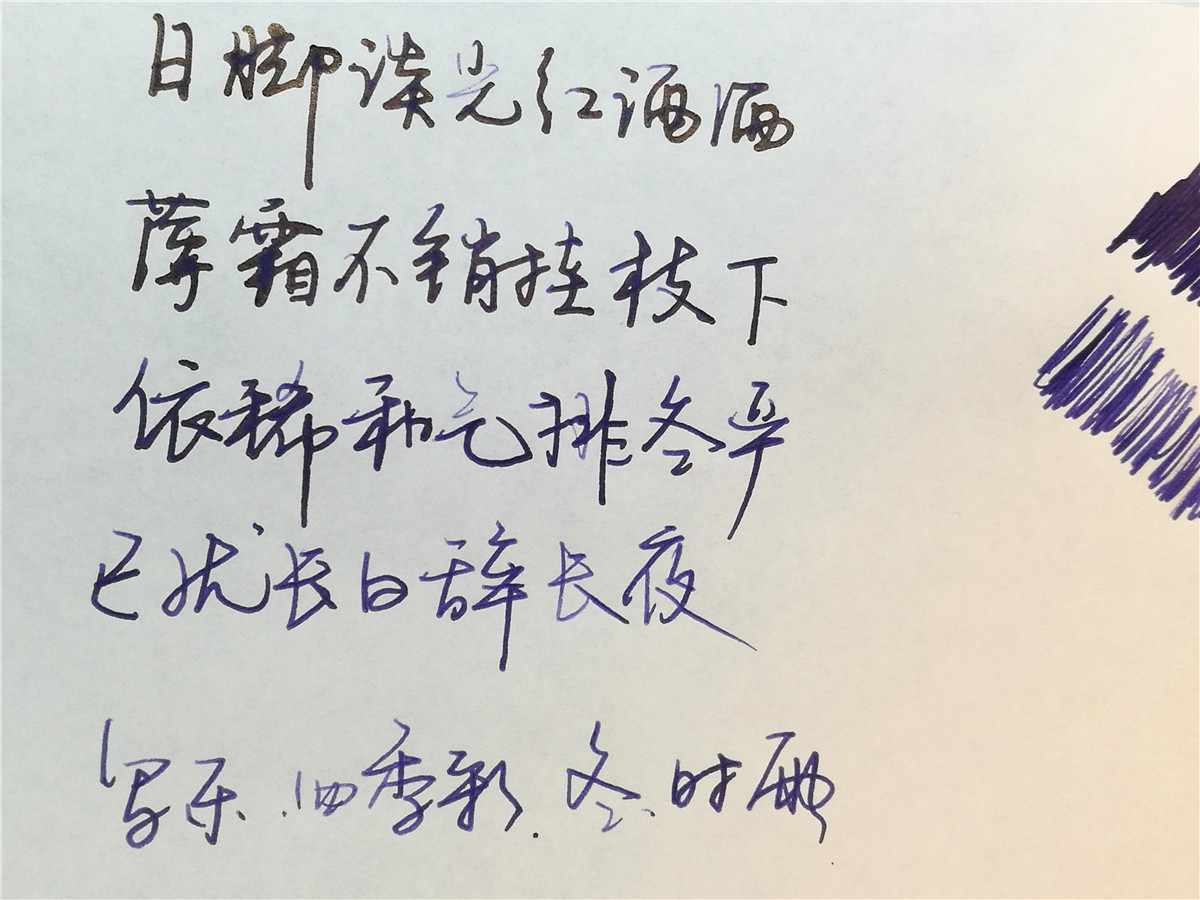 日脚淡光红洒洒
薄霜不销桂枝下
依稀和气排冬严
已就长日辞长夜
写乐.四季彩.冬.时雨